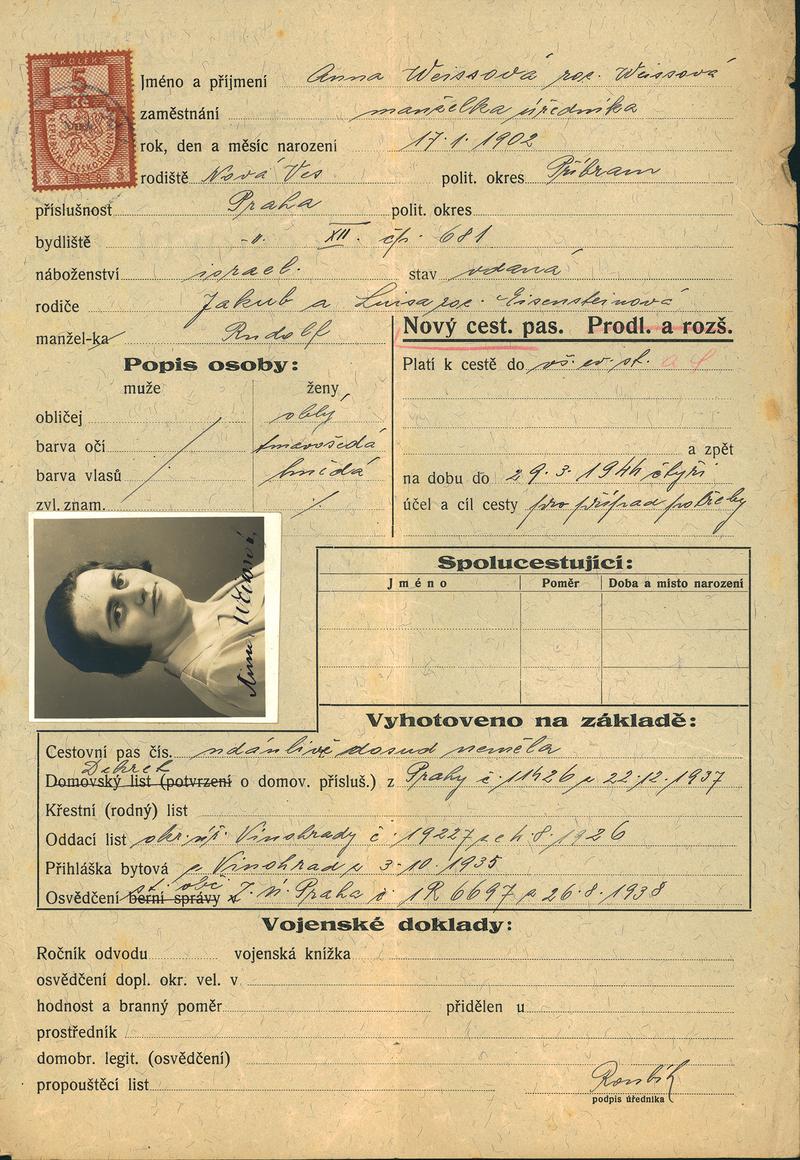 KOLEK
5
Kč
Jméno a příjmení Anna Weissová roz. Weissová
zaměstnání manželka úředníka
rok, den a měsíc narození 17. 1. 1902
rodiště Nová Ves polit. okres Příbram
příslušnost Praha polit. okres
bydliště -"- XII. čp. 681
náboženství israel. stav vdaná
rodiče Jakub a Luisa roz. Eisensteinová
manžel-ka Rudolf
Nový cest. pas. Prodl. a rozš.
Popis osoby:
muže ženy
Platí k cestě do vš. ev. st.
obličej oblý
barva očí tmavošedá
barva vlasů hnědá
zvl. znam. /.
a zpět
na dobu do 29. 3. 1944 čtyři
účel a cíl cesty pro případ potřeby
Anna Weissová
Spolucestující:
Jméno Poměr Doba a místo narození
Vyhotoveno na základě:
Cestovní pas čís. údánlivě dosud neměla
Dekret
Domovský list (potvrzení o domov. přísluš.) z Prahy č. 11426 z 22. 12. 1937
Křestní (rodný) list
Oddací list okr. úř. Vinohrady č. 19227 8. 1926
Přihláška bytová z Vinohrad z 3. 10. 1935
st. obč.
Osvědčení berní správy Praha č. 1R 6697 z 26. 8. 1938
Vojenské doklady:
Ročník odvodu vojenská knížka
osvědčení dopl. okr. vel. v
hodnost a branný poměr přidělen u
prostředník
domobr. legit. (osvědčení)
propouštěcí list
Roubík
podpis úředníka